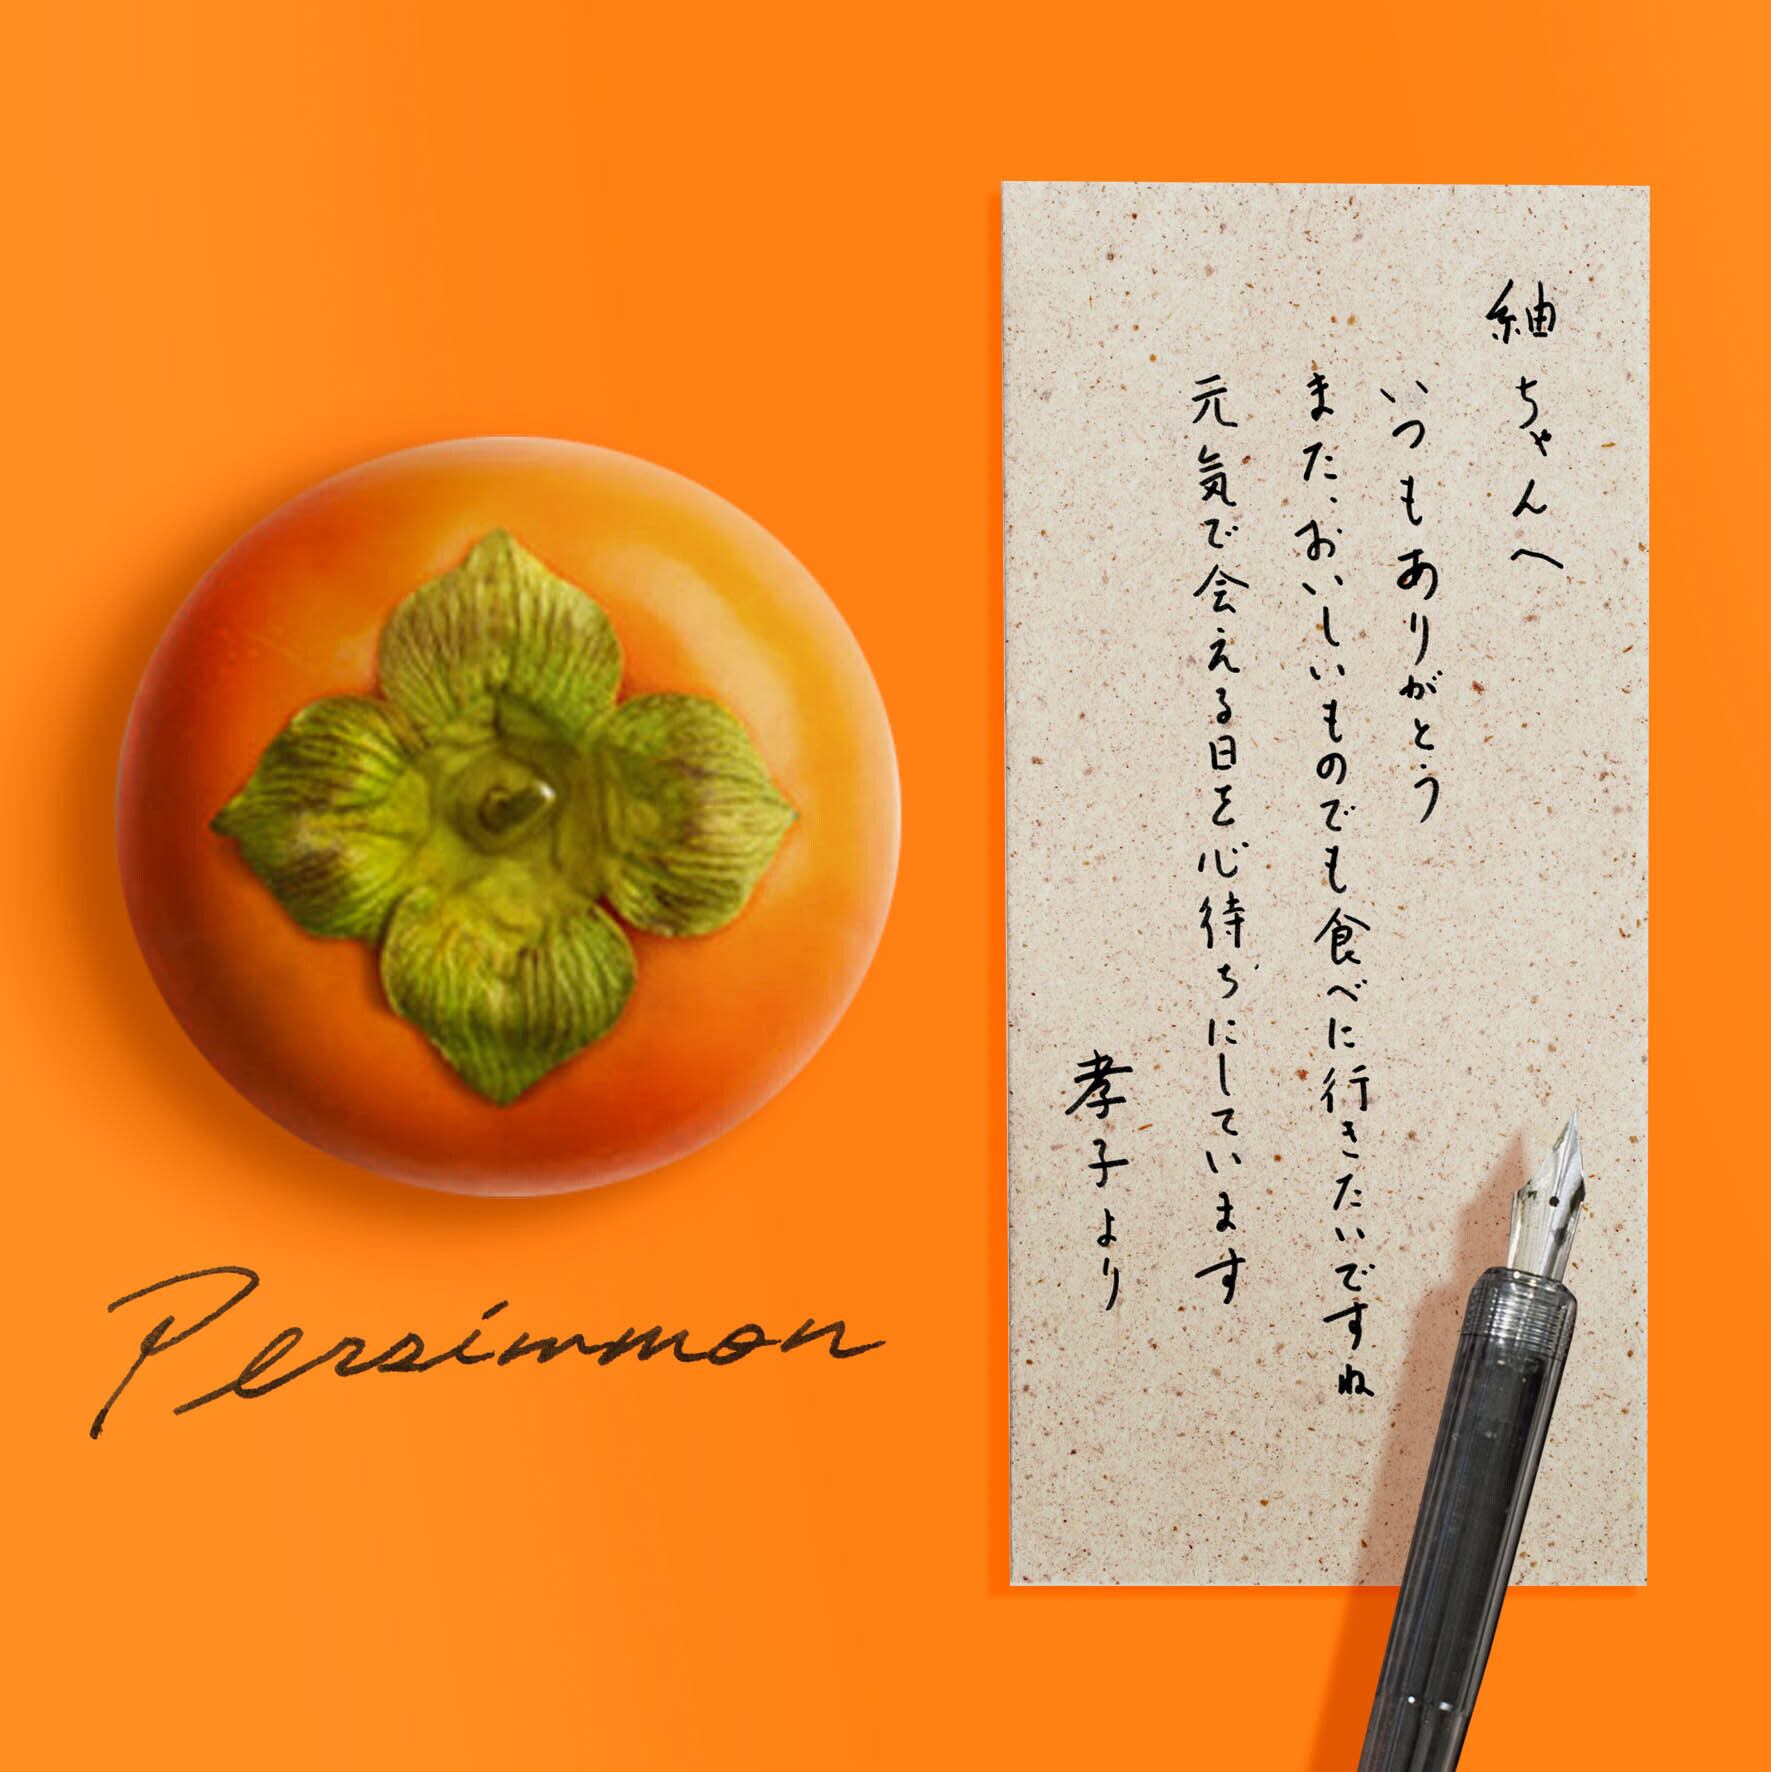 Persimmon
紬ちゃんへ
いつもありがとう
また、おいしいものでも食べに行きたいですね
元気で会える日を心待ちにしています
孝子より